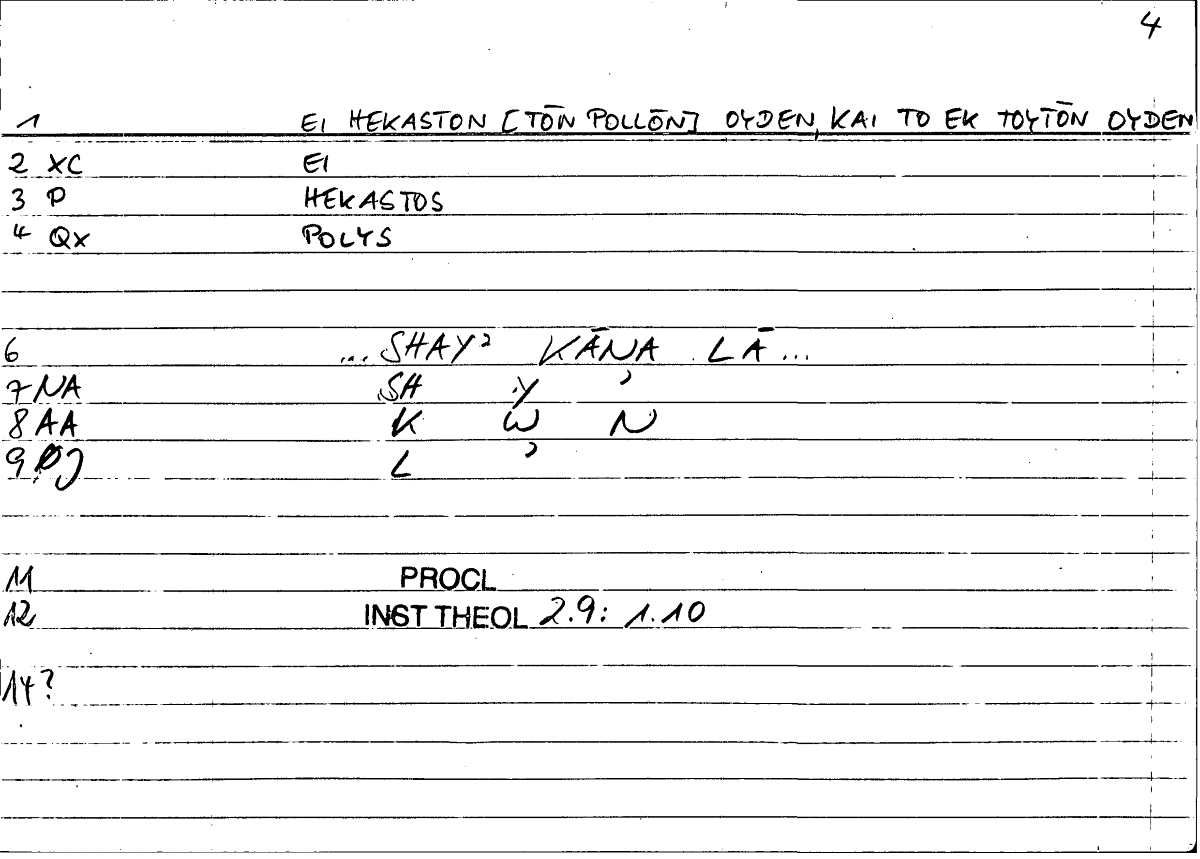 4
1 EI HEKASTON [TŌN POLLŌN] OYDEN, KAI TO EK TOYTŌN OYDEN
2 XC EI
3 P HEKASTOS
4 QX POLYS
6 ... SHAY' KĀNA LĀ ...
7 NA SH Y '
8 AA K W N
9 L '
11 PROCL
12 INST THEOL 2.9: 1.10
14?